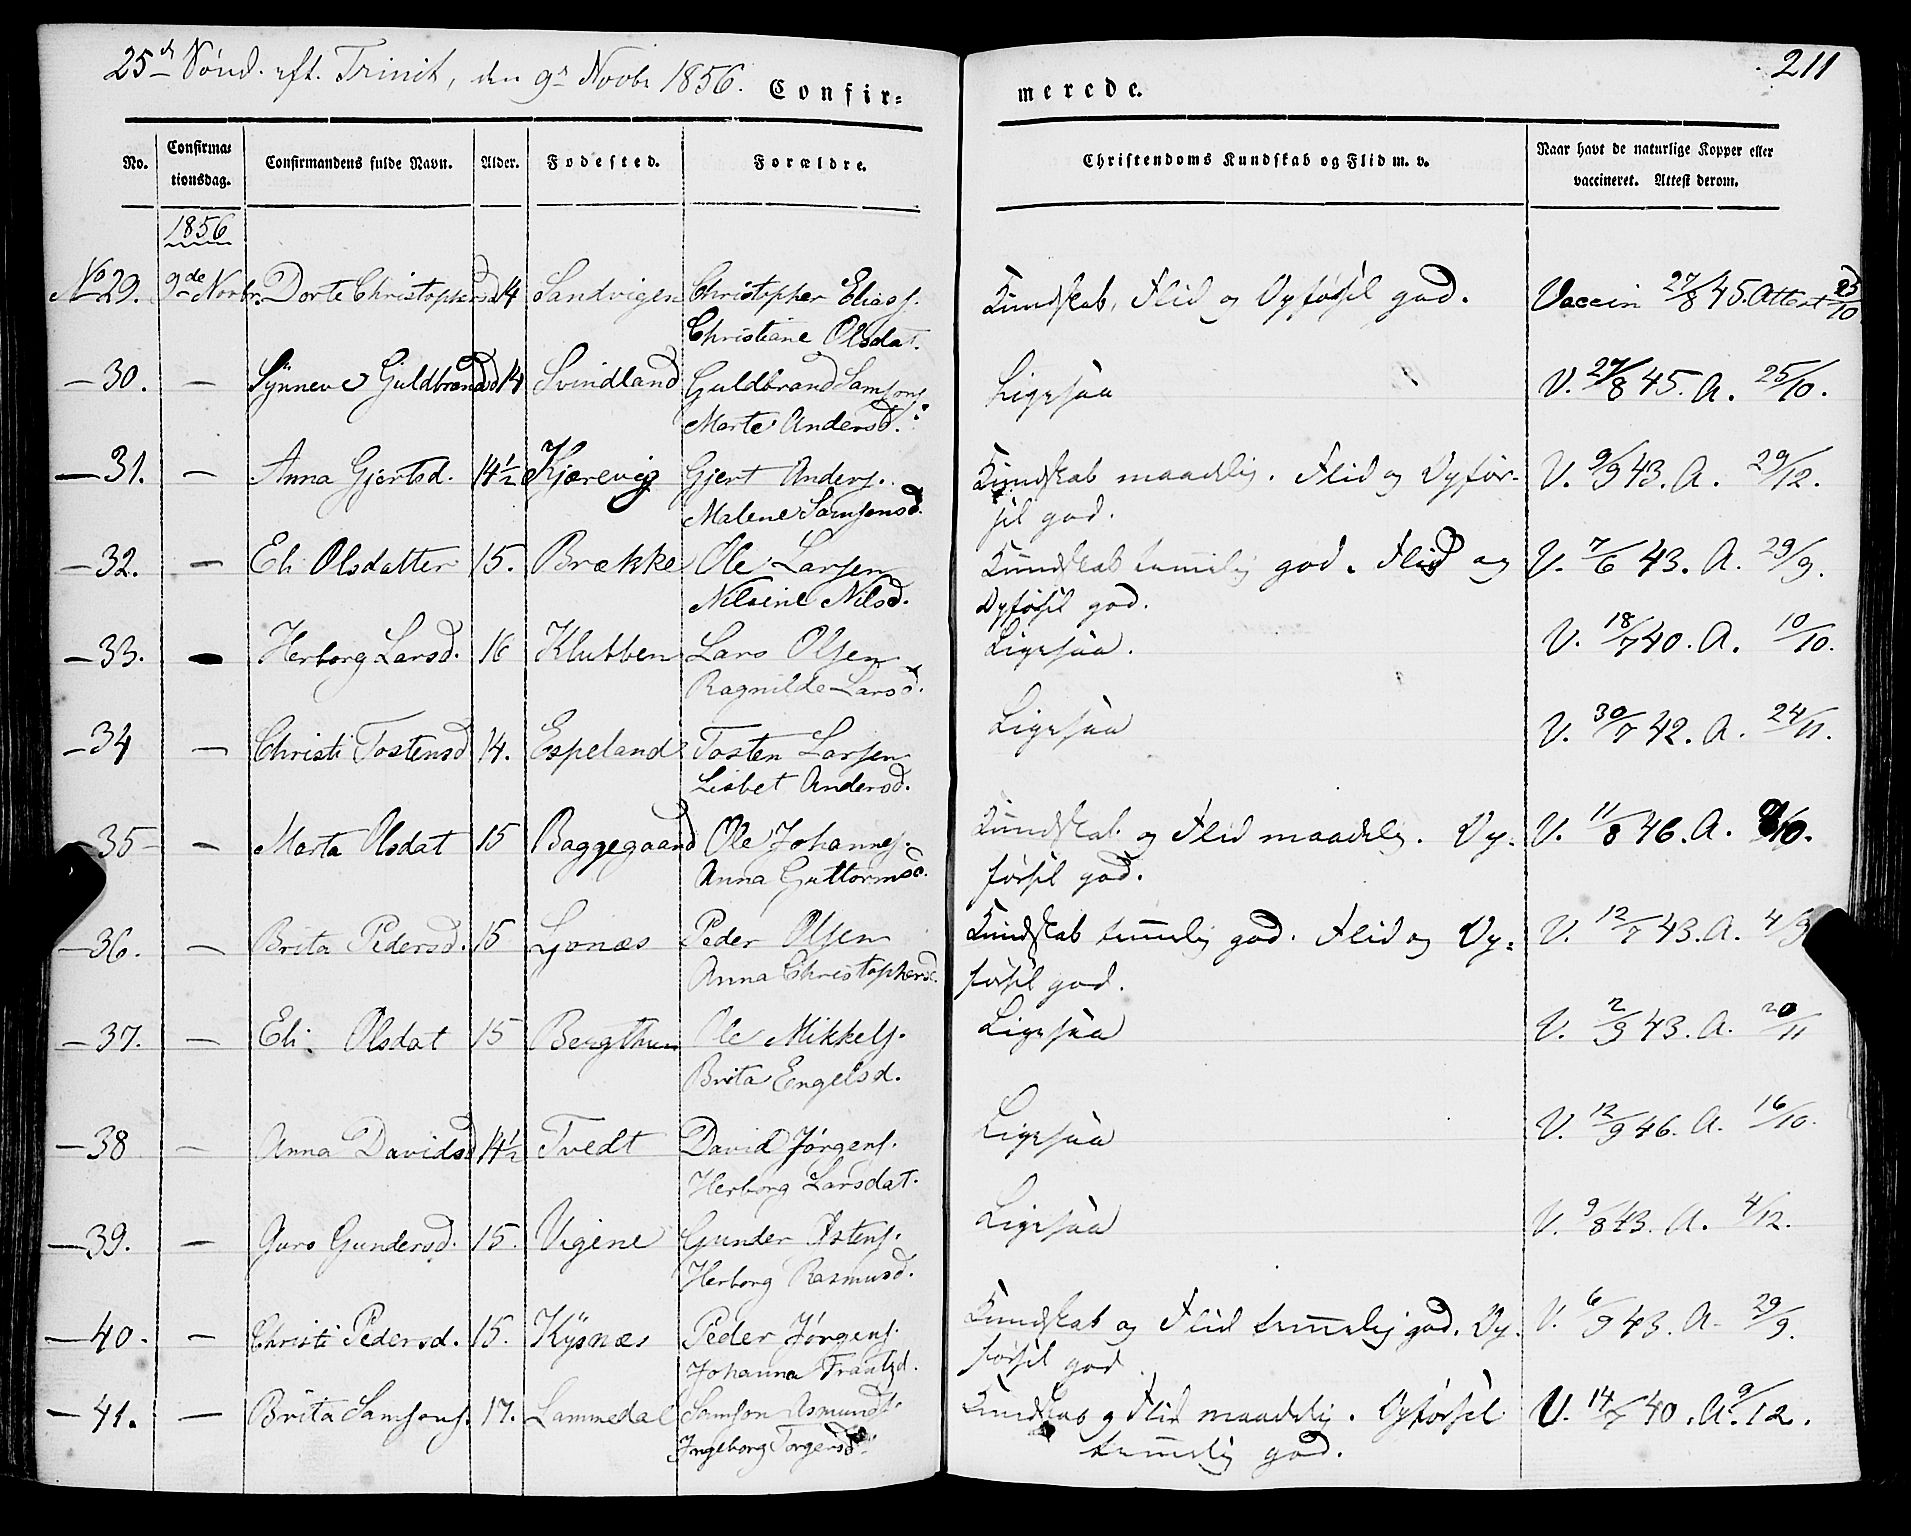 25de Sönd. eft. Trinit, den 9de Novbr 1856.
Confir=
merede.
211
No.
Confirma=
tionsdag.
Confirmandens fulde Navn.
Alder.
Fodested.
Forældre.
Christendoms Kundskab og Flid m. v.
Naar havt de naturlige Kopper eller
vaccineret. Attest derom.
1856
No 29. 9de Novbr. Dorte Christophersd 14 Sandvigen Christopher Eliass. Kundskab, Flid og Opførsel god. Vaccin 27/8 45. Attest 25/10
Christiane Olsdat.
— 30. — Synneve Guldbrandsd 14 Svindland Guldbrand Samsons. Ligesaa V. 27/8 45. A. 25/10.
Marte Andersd.
— 31. — Anna Gjertsd. 14½ Kjærevig Gjert Anders. Kundskab maadelig. Flid og Opfør-
V. 9/9 43. A. 29/12.
Malene Samsonsd. sel god.
— 32. — Eli Olsdatter 15. Brække Ole Larsen Kundskab temmelig god. Flid og V. 7/6 43. A. 29/9.
Nilsine Nilsd. Opførsel god.
— 33. — Herborg Larsd. 16 Klubben Lars Olsen Ligesaa. V. 18/7 40. A. 10/10.
Ragnilde Larsd.
— 34 — Christi Tostensd 14. Espeland Tosten Larsen Ligesaa V. 30/7 42. A. 24/11.
Lisbet Andersd.
— 35 — Marta Olsdat 15 Baggegaard Ole Johannes. Kundskab og Flid maadelig. Op- V. 11/8 46. A.
Anna Guttormsd. førsel god.
— 36. — Brita Pedersd. 15 Gonæs Peder Olsen Kundskab temmelig god. Flid og Op= V. 12/7 43. A. 4/9
Anna Christophersd. førsel god.
— 37. — Eli Olsdat 15 Bergthun Ole Mikkels. Ligesaa V. 2/9 43. A. 20/11
Brita Engelsd.
— 38 — Anna Davidsd 14½ Tvedt David Jørgens. Ligesaa V. 12/9 46. A. 16/10.
Herborg Larsdat.
— 39. — Guro Gundersd. 15. Vigene Gunder Østens. Ligesaa V. 9/8 43. A. 4/12.
Herborg Rasmusd.
— 40. — Christi Pedersd. 15. Kysnæs Peder Jørgens. Kundskab og Flid temmelig god. Op- V. 6/9 43. A. 29/9.
Johanna Frantzd. førsel god
— 41. — Brita Samsons. 17. Lammedal Samson Asmunds. Kundskab og Flid maadelig. Opførsel V. 14/7 40. A. 9/12.
Ingeborg Torgersd. temmelig god.